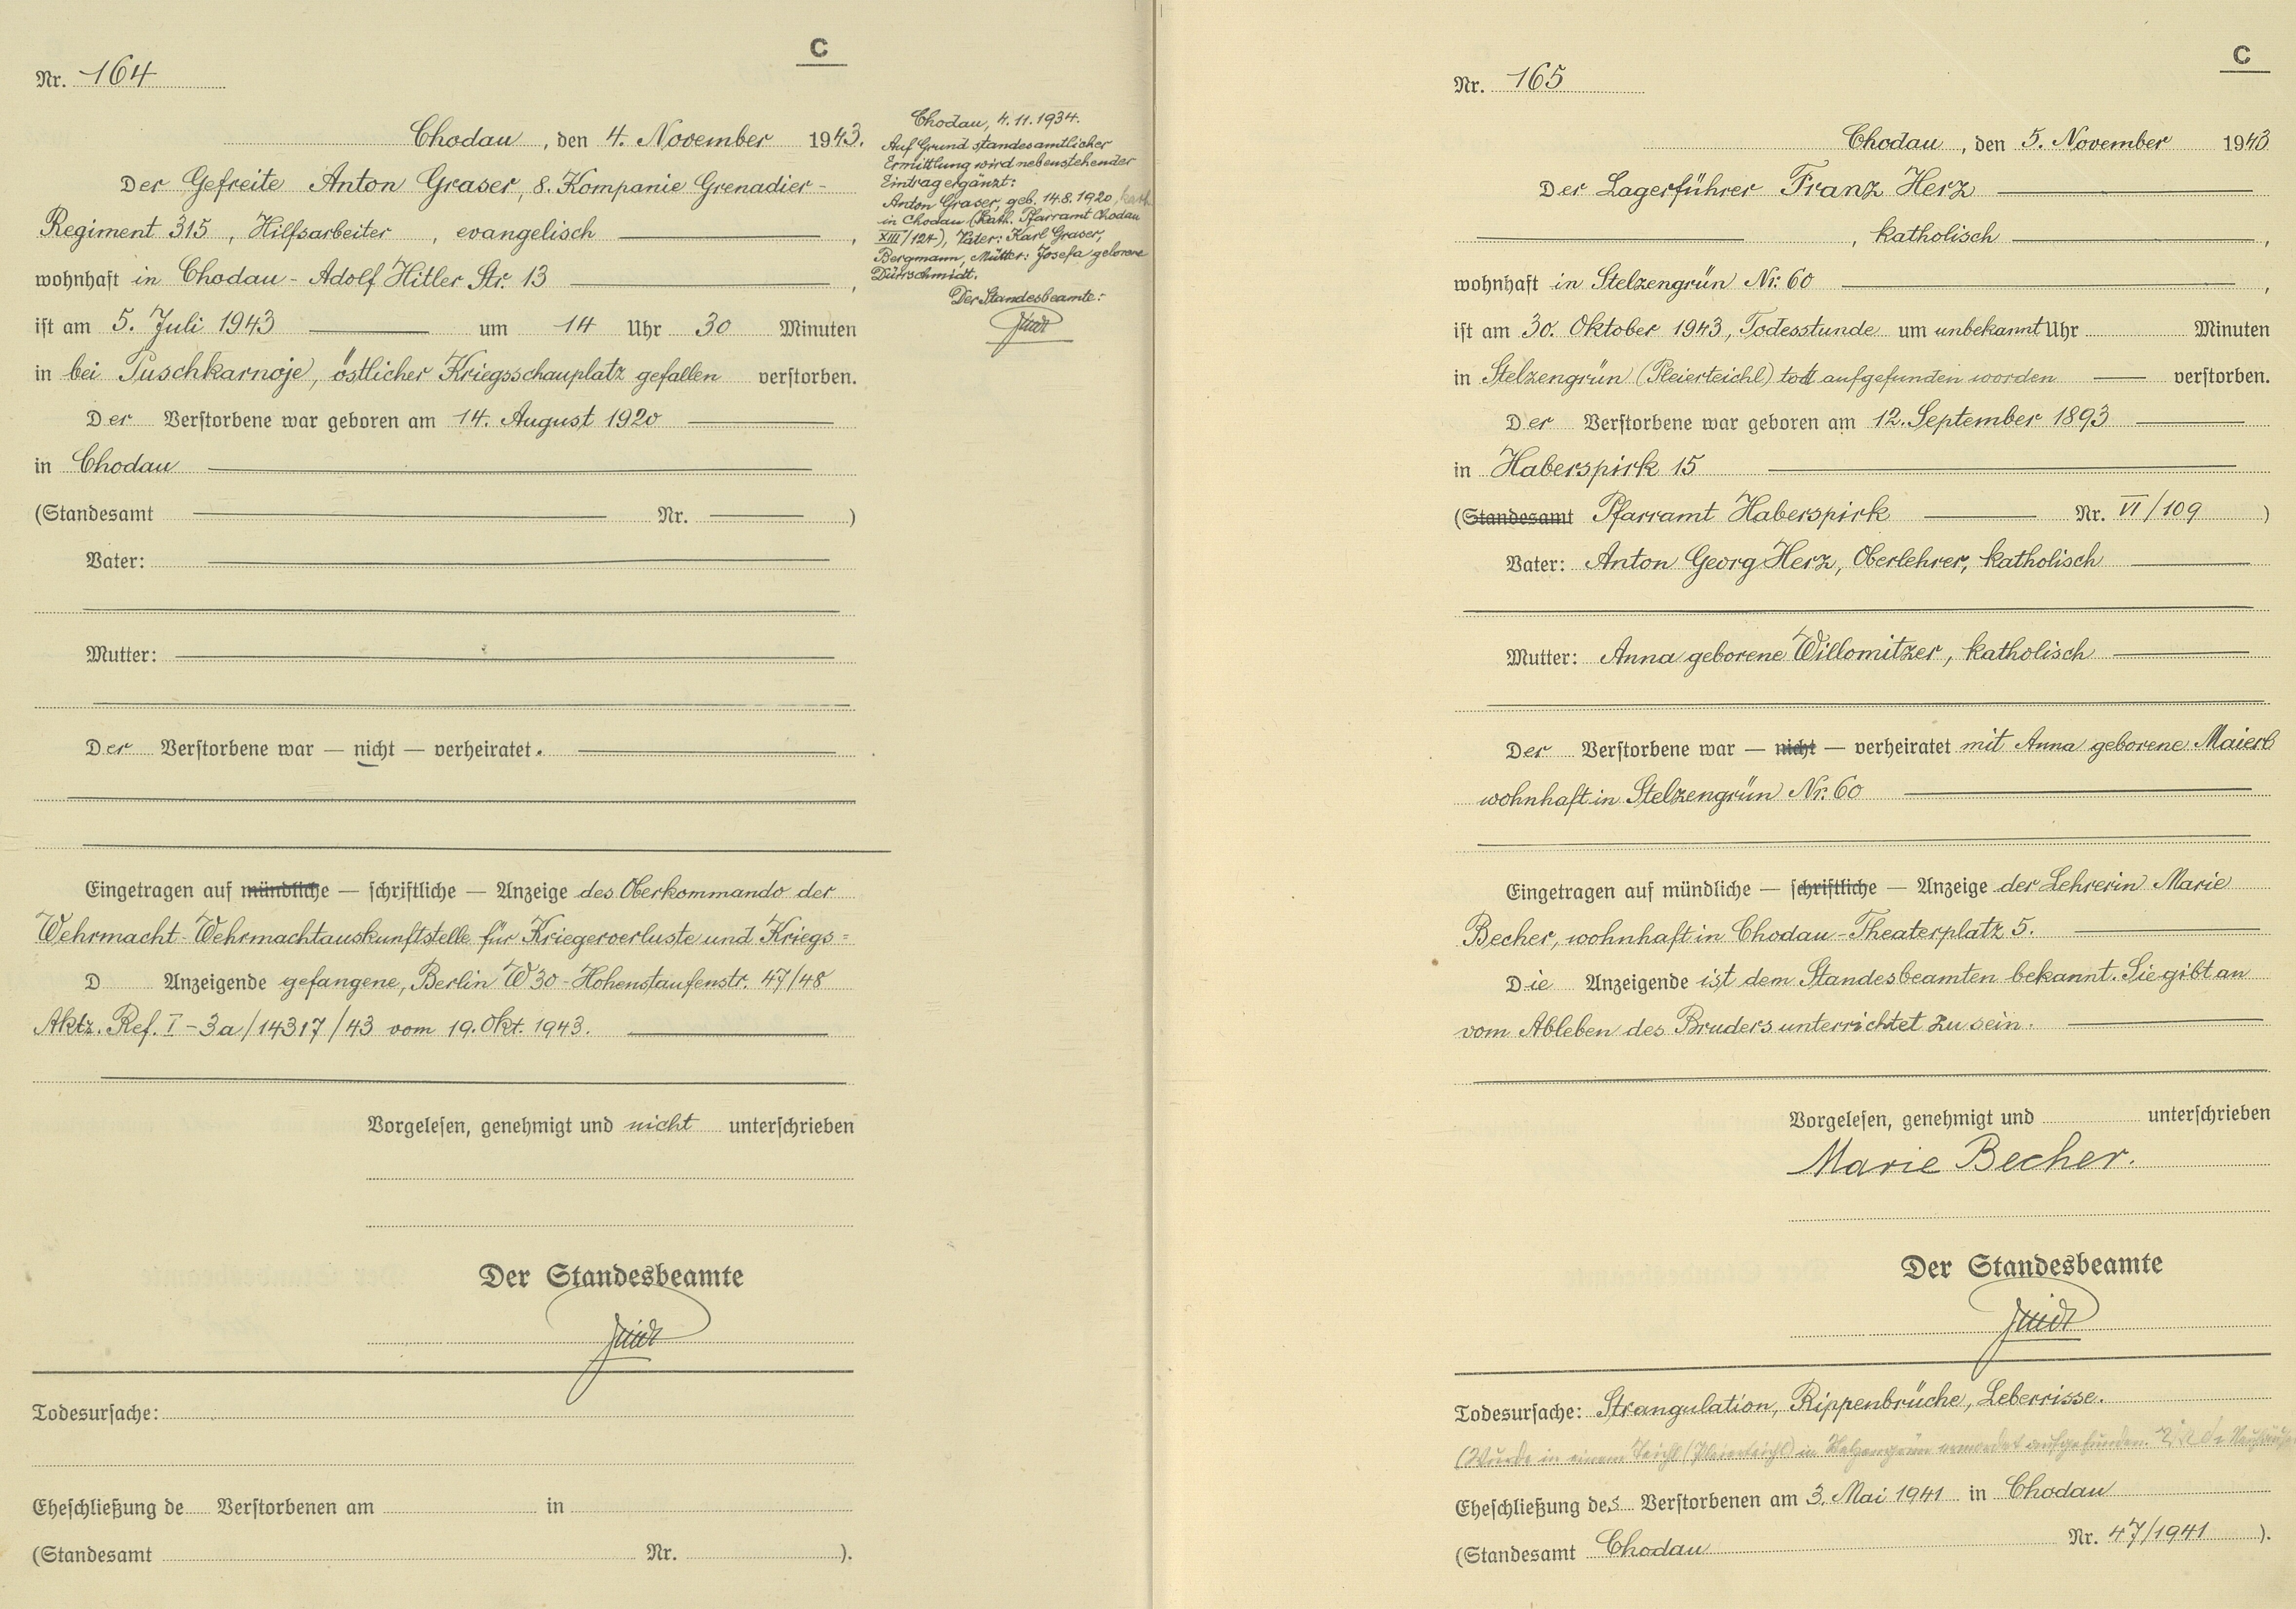 C
Nr. 164
Chodau, den 4. November 1943.
Der Gefreite Anton Graser, 8. Kompanie Grenadier-
Regiment 315, Hilfsarbeiter, evangelisch,
wohnhaft in Chodau - Adolf Hitler Str. 13,
ist am 5. Juli 1943 um 14 Uhr 30 Minuten
in bei Puschkarnoje, östlicher Kriegsschauplatz gefallen verstorben.
Der Verstorbene war geboren am 14. August 1920
in Chodau
(Standesamt Nr. )
Vater:
Mutter:
Der Verstorbene war — nicht — verheiratet.
Eingetragen auf mündliche — schriftliche — Anzeige des Oberkommando der
Wehrmacht-Wehrmachtauskunftstelle für Kriegerverluste und Kriegs=
D Anzeigende gefangene, Berlin W 30 - Hohenstaufenstr. 47/48
Aktz. Ref. I - 3a/14317/43 vom 19. Okt. 1943.
Vorgelesen, genehmigt und nicht unterschrieben
Der Standesbeamte
Todesursache:
Eheschließung de Verstorbenen am in
(Standesamt Nr. ).
Chodau, 4.11.1934.
Auf Grund standesamtlicher
Ermittlung wird nebenstehender
Eintrag ergänzt:
Anton Graser, geb. 14.8.1920, kath.
in Chodau (Kath. Pfarramt Chodau
XIII/124), Vater: Karl Graser,
Bergmann, Mutter: Josefa geborene
Dürrschmidt.
Der Standesbeamte:
C
Nr. 165
Chodau, den 5. November 1943
Der Lagerführer Franz Herz
, katholisch,
wohnhaft in Stelzengrün Nr. 60,
ist am 30. Oktober 1943, Todesstunde um unbekannt Uhr Minuten
in Stelzengrün (Pleierteichl) tott aufgefunden worden verstorben.
Der Verstorbene war geboren am 12. September 1893
in Haberspirk 15
(Standesamt Pfarramt Haberspirk Nr. VI/109)
Vater: Anton Georg Herz, Oberlehrer, katholisch
Mutter: Anna geborene Willomitzer, katholisch
Der Verstorbene war — nicht — verheiratet mit Anna geborene Maierl
wohnhaft in Stelzengrün Nr. 60
Eingetragen auf mündliche — schriftliche — Anzeige der Lehrerin Marie
Becher, wohnhaft in Chodau - Theaterplatz 5.
Die Anzeigende ist dem Standesbeamten bekannt. Sie gibt an
vom Ableben des Bruders unterrichtet zu sein.
Vorgelesen, genehmigt und unterschrieben
Marie Becher.
Der Standesbeamte
Todesursache: Strangulation, Rippenbrüche, Leberrisse.
(Wurde in einem Teichl (Pleierteichl) in Stelzengrün ermordet aufgefunden.
Eheschließung des Verstorbenen am 3. Mai 1941 in Chodau
(Standesamt Chodau Nr. 47/1941 ).